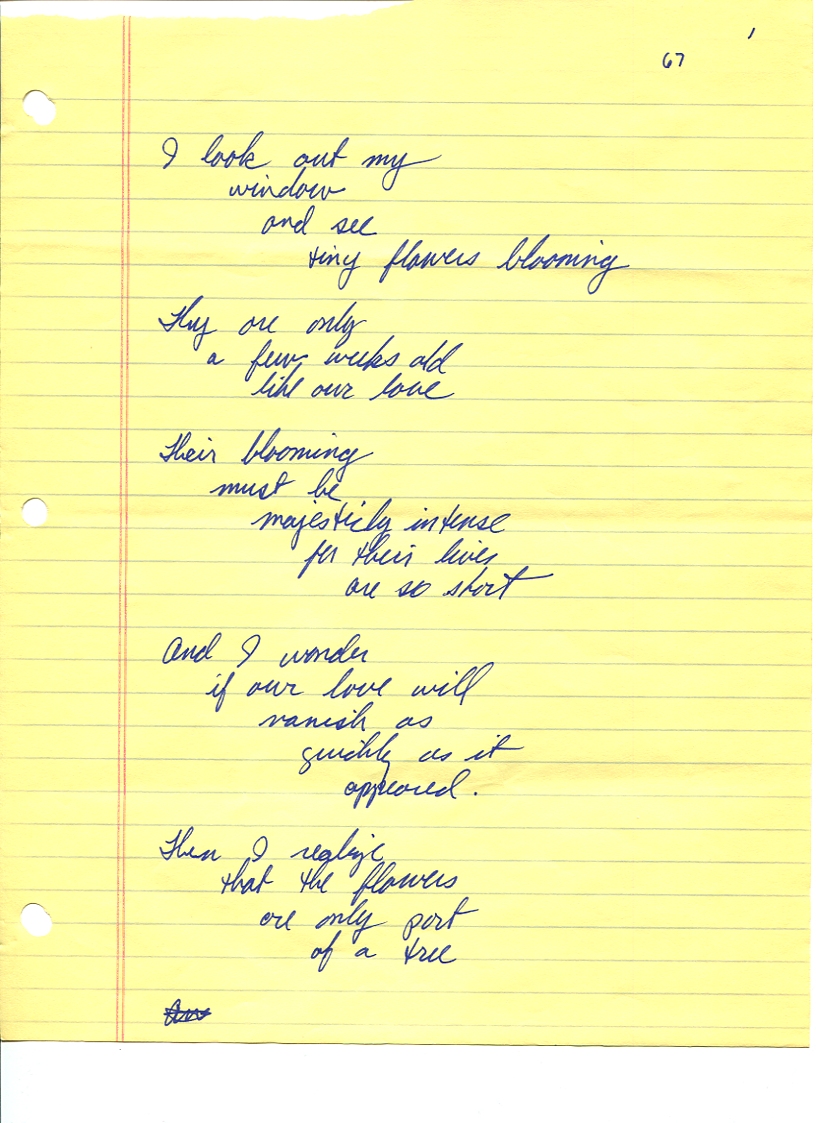 67
I look out my
window
and see
tiny flowers blooming
They are only
a few weeks old
like our love
Their blooming
must be
majesticly intense
for their lives
are so short
And I wonder
if our love will
vanish as
quickly as it
appeared.
Then I realize
that the flowers
are only part
of a tree